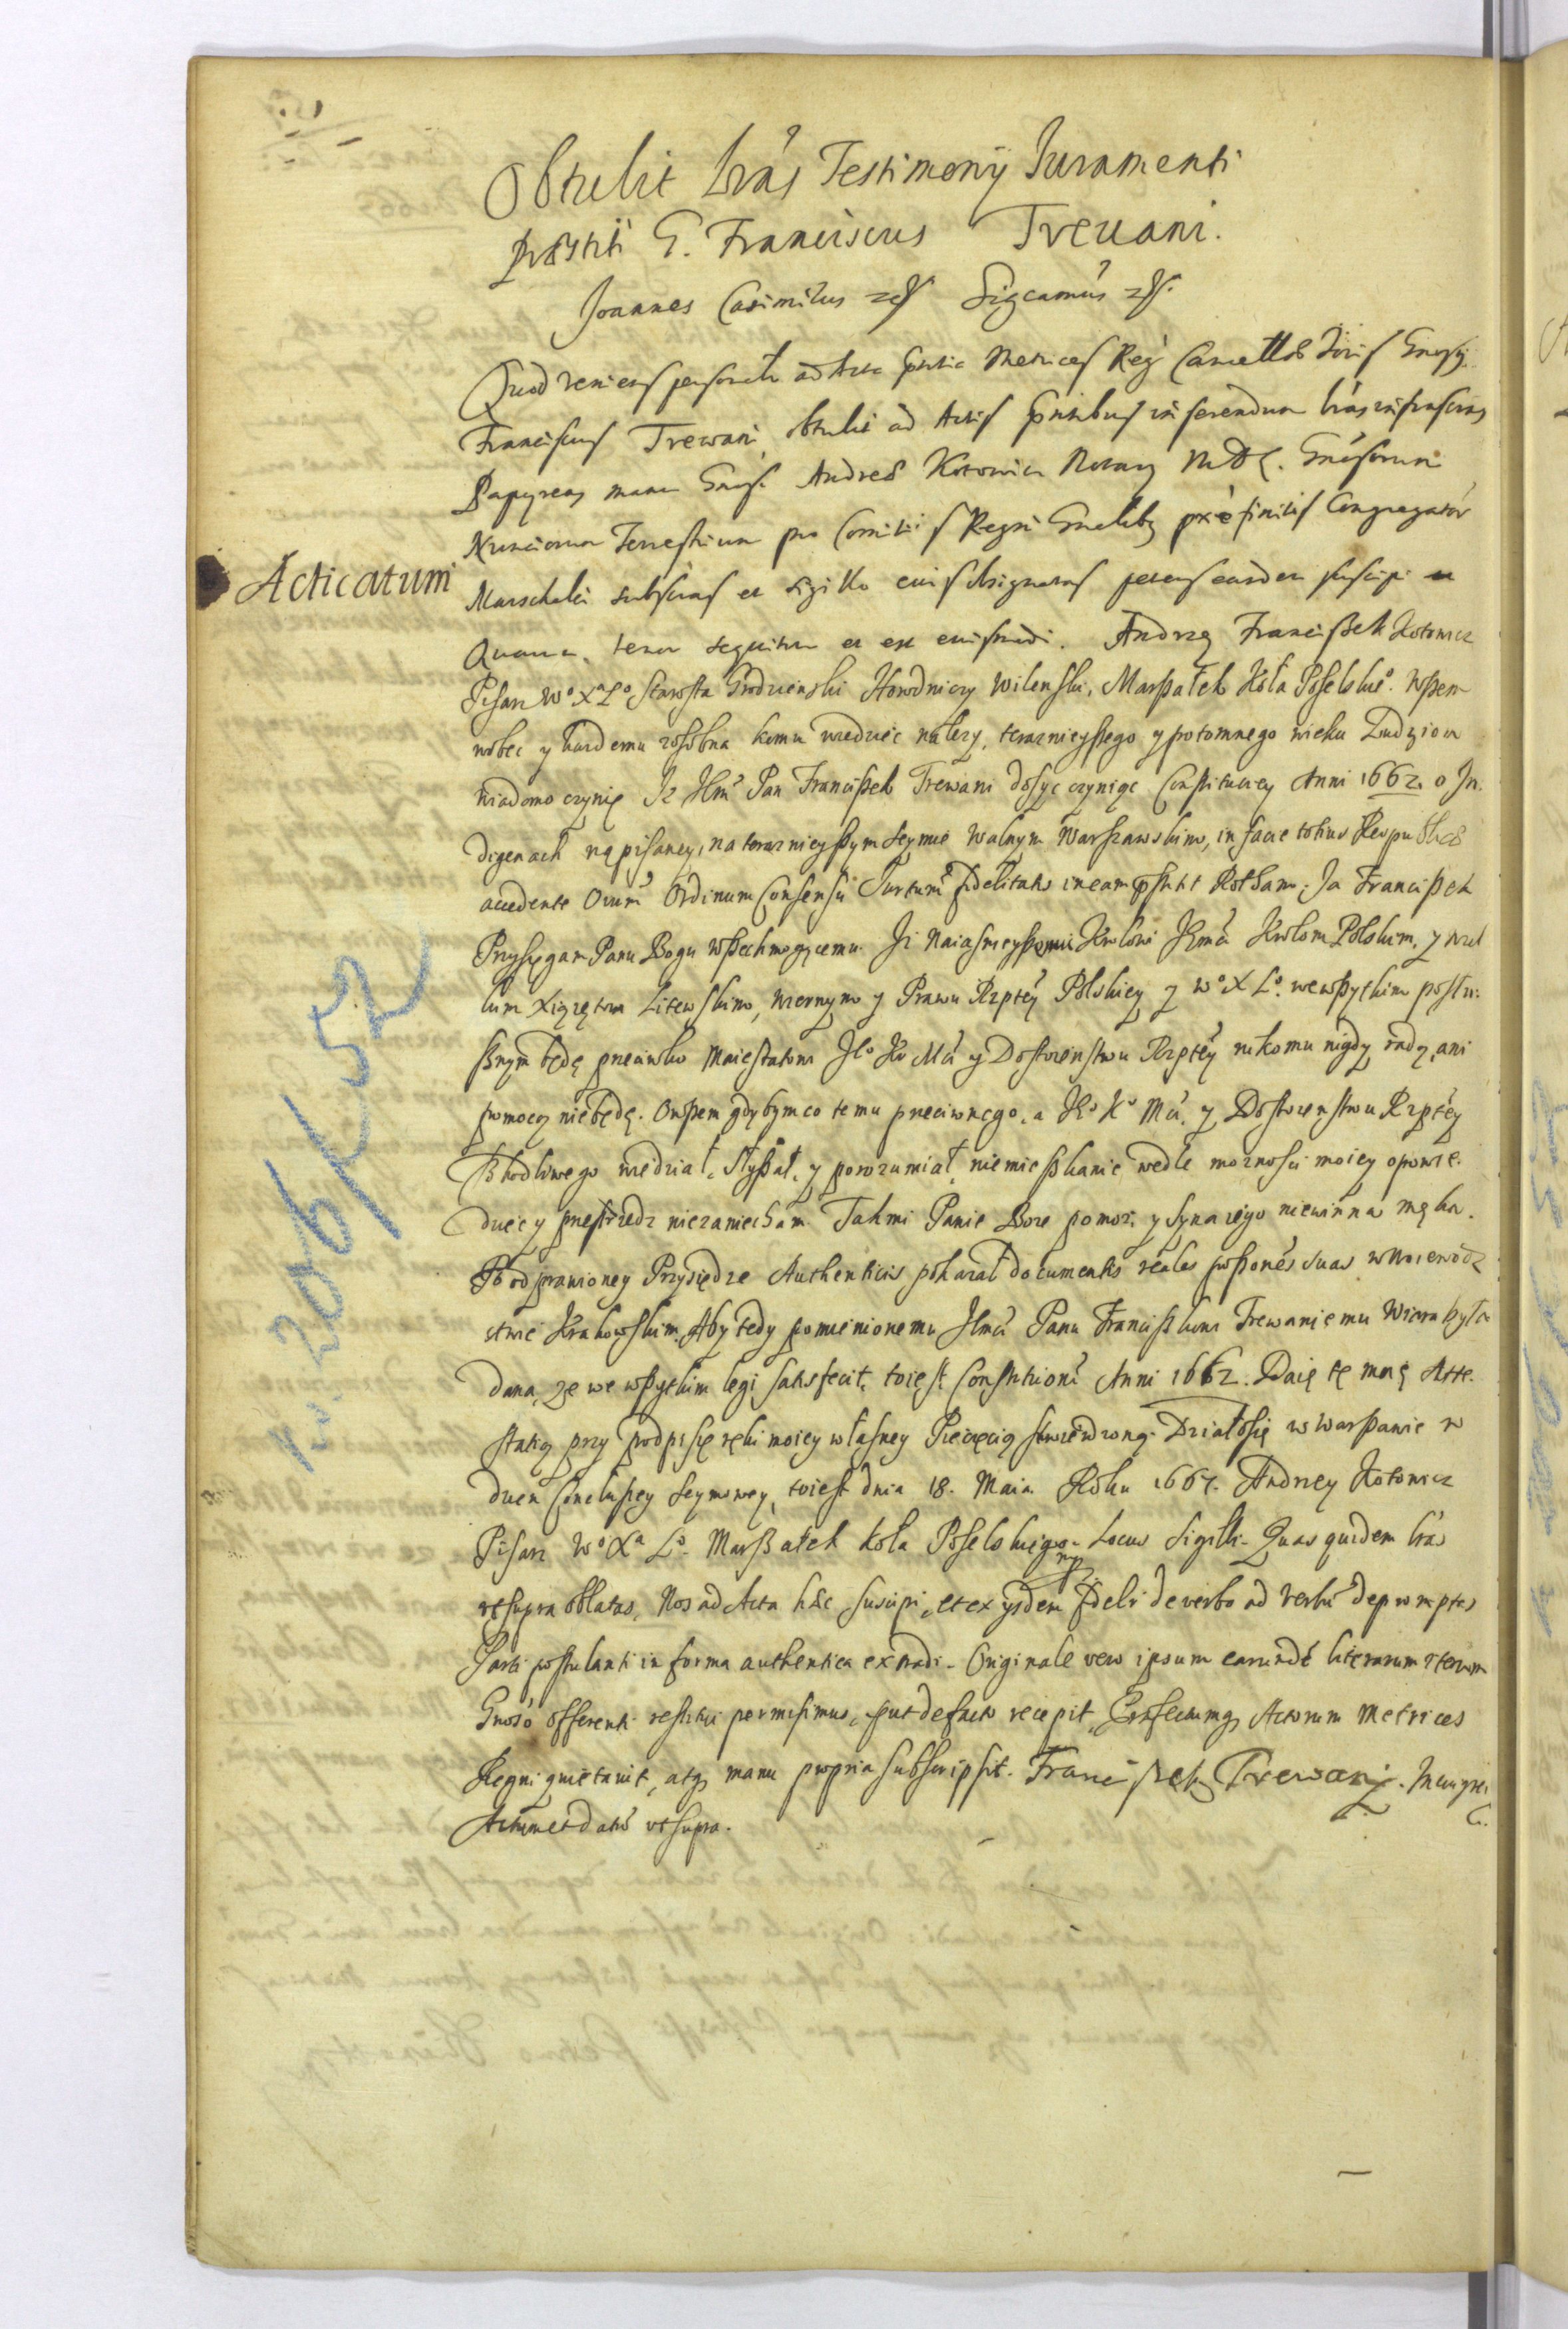 Obtulit Lras Testimonij Juramenti
præstiti G. Franciscus Trevani.
Joannes Casimirus etc Significamus etc.
Quod veniens personaliter ad Acta pntia Metrices Regni Cancellariæ Gnosus
Franciscus Trewani, obtulit ad Actis pntibus inserendum lras infrascras
Papyreas manu Gnosi Andreæ Kotowicz Notarij M D L. Gnosorum
Nunciorum Terrestrium pro Comitijs Regni Gnalibus præfinitis Congregator
Acticatum
Marschalci subscras et sigillo eius obsignatas petens easdem suscipi
Quarum tenor sequitur et est eiusmodi. Andrzej Franciszek Kotowicz
Pisarz Wo Xa Lo Starosta Grodzienski Horodniczy Wilenski, Marszałek Koła Poselskieo. Wszem
wobec y kazdemu zosobna komu wiedziec należy, terazniejszego y potomnego wieku Ludziom
wiadomo czynię Iz Jmć Pan Franciszek Trewani dosyc czyniąc Constitucyej Anni 1662. o In.
digenach napisaney, na terazniejszym Sejmie Walnym Warszawskim, in facie totius Reipublicæ
accedente Oium Ordinum Consensu Jurtum fidelitatis in eam præstitit Rotham. Ja Franciszek
Przysięgam Panu Bogu Wszechmogącemu. Iż Naiasnieyszemu Krolowi Jmći Krolom Polskim, y Wiel
kim Xiązętom Litewskim, wiernym y Prawu Rzptey Polskiey y Wo X Lo. we wszytkim posłu.
sznym będę przeciwko Maiestatowi Jo Kr Mći y Dostoienstwu Rzptey nikomu nigdy radą, ani
pomocą nie będę. Owszem gdybym co temu przeciwnego, a Jo Ko Mći y Dostoienstwu Rzptey
Szkodliwego wiedział, słyszał, y porozumiał, niemieszkanie wedle moznosci moiey opowie.
dziec y przestrzedz niezaniecham. Tak mi Panie Boze pomoz, y Syna iego niewinna męka.
Po odprawioney Przysiędze Authenticis pokazał documentis reales possiones suas w Woiewodz
stwie Krakowskim, Aby tedy pomienionemu Jmći Panu Franciszkowi Trewaniemu Wiara była
dana, ze we wszytkim legi satisfecit, toiest Constitutioni Anni 1662. Daię tę moię Atte.
statią przy podpisie ręki moiey własney Pieczęcią stwierdzoną. Działosię w Warszawie w
dzien Conclusiey Seymowey, toiest dnia 18. Maia Roku 1667. Andrzey Kotowicz
Pisarz Wo Xa Lo. Marszałek Koła Poselskiego. mp Locus Sigilli. Quas quidem lras
ut supra oblatas, Nos ad Acta hæc suscipi, et ex ijsdem fideli de verbo ad verbum depromptas
Parti postulanti in forma authentica extradi. Originale vero ipsum earundem literarum iterum
Gnoso offerenti restitui permisimus, put de facto recepit, Præfectumq Actorum Metrices
Regni quietavit, atq manu propria subscripsit. Franciszek Trewani. manu pri
Actum et datum ut supra.
Kw. 206/K 52